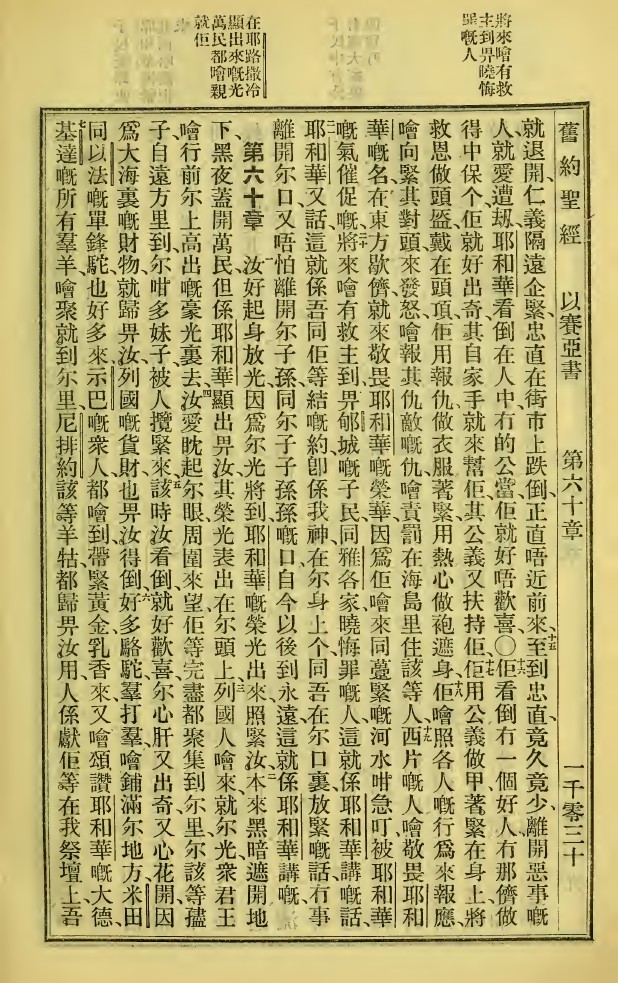 將來噲有救
主到畀曉悔
罪嘅人
在耶路撒冷
顯出來嘅光
萬民都噲親
就佢
舊約聖經 以賽亞書 第六十章 一千零三十
就退開、仁義隔遠企緊、忠直在街市上跌倒、正直唔近前來、十五至到忠直竟久竟少、離開惡事嘅
人、就愛遭刼、耶和華看倒在人中冇的公當、佢就好唔歡喜、〇十六佢看倒冇一個好人、冇那儕做
得中保个、佢就好出奇、其自家手就來幫佢、其公義又扶持佢、十七佢用公義做甲、著緊在身上、將
救恩做頭盔、戴在頭頂、佢用報仇做衣服著緊、用熱心做袍遮身、十八佢噲照各人嘅行爲來報應、
噲向緊其對頭來發怒、噲報其仇敵嘅仇、噲責罰在海島里住該等人、十九西片嘅人、噲敬畏耶和
華嘅名、在東方歇儕、就來敬畏耶和華嘅榮華、因爲佢噲來同蔓緊嘅河水咁急、叮被耶和華
嘅氣催促嘅、二十將來噲有救主到畀郇城嘅子民、同雅各家曉悔罪嘅人、這就係耶和華講嘅話、
耶和華又話、這就係吾同佢等結嘅約、卽係我神在尔身上个、同吾在尔口裏放緊嘅話、冇事
離開尔口、又唔怕離開尔子孫、同尔子子孫孫嘅口、自今以後到永遠、這就係耶和華講嘅、
第六十章 一汝好起身放光、因爲尔光將到、耶和華嘅榮光出來照緊汝、二本來黑暗遮開地
下、黑夜蓋開萬民、但係耶和華顯出畀汝、其榮光表出在尔頭上、三列國人噲來就尔光、衆君王
噲行前尔上高出嘅豪光裏去、四汝愛眈起尔眼周圍來望、佢等完盡都聚集到尔里、尔該等孻
子自遠方里到、尔咁多妹子、被人攬緊來、五該時汝看倒、就好歡喜、尔心肝又出奇、又心花開、因
爲大海裏嘅財物、就歸畀汝、列國嘅貨財、也畀汝得倒、六好多駱駝、羣打羣、噲鋪滿尔地方、米田
同以法嘅單鋒駝、也好多來、示巴嘅衆人都噲到、帶緊黃金乳香來、又噲頌讚耶和華嘅大德、
七基達嘅所有羣羊、噲聚就到尔里、尼排約該等羊牯、都歸畀汝用、人係獻佢等在我祭壇上、吾